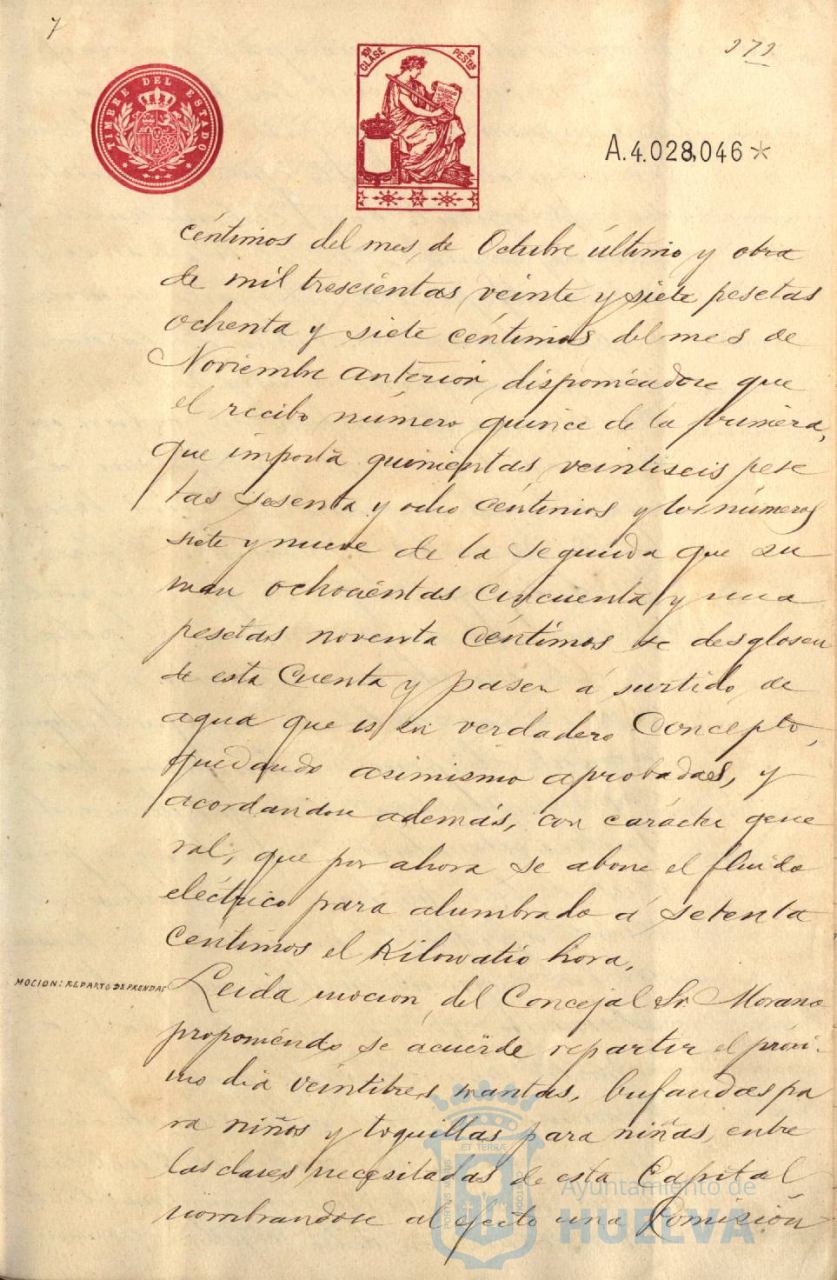 7
272
TIMBRE DEL ESTADO
10ª CLASE
2 PESTAS
A.4.028,046*
céntimos del mes de Octubre último y otra
de mil trescientas veinte y siete pesetas
ochenta y siete céntimos del mes de
Noviembre anterior, disponiendose que
el recibo número quince de la primera,
que importa quinientas veintiseis pese
tas sesenta y ocho céntimos y los números
siete y nueve de la segunda que su
man ochocientas cincuenta y una
pesetas noventa céntimos se desglosen
de esta cuenta y pasen á surtido de
agua que es su verdadero concepto,
quedando asimismo aprobadas, y
acordandose además, con carácter gene
ral, que por ahora se abone el fluido
eléctrico para alumbrado á setenta
céntimos el Kilowatio hora.
MOCION: REPARTO DE PRENDAS
Leida mocion del Concejal Sr Morano
proponiendo se acuerde repartir el próxi-
mo dia veintitres mantas, bufandas pa
ra niños y toquillas para niñas entre
las clases necesitadas de esta Capital
nombrandose al efecto una Comisión
Ayuntamiento de
HUELVA